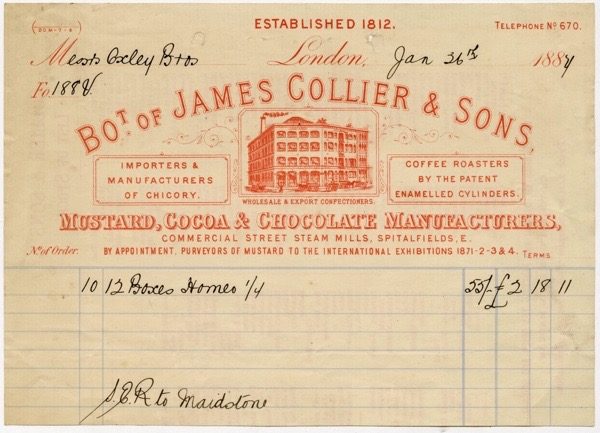 (20M-7-4)
ESTABLISHED 1812.
TELEPHONE No 670.
Messrs Oxley Bros London, Jan 26th 1884
Fo. 1884.
BOT. OF JAMES COLLIER & SONS,
IMPORTERS &
MANUFACTURERS
OF CHICORY.
COFFEE ROASTERS
BY THE PATENT
ENAMELLED CYLINDERS.
WHOLESALE & EXPORT CONFECTIONERS.
MUSTARD, COCOA & CHOCOLATE MANUFACTURERS,
COMMERCIAL STREET STEAM MILLS, SPITALFIELDS, E.
No. of Order. BY APPOINTMENT, PURVEYORS OF MUSTARD TO THE INTERNATIONAL EXHIBITIONS 1871-2-3 & 4. TERMS
10 12 Boxes Homeo 1/4 55/- £ 2 18 11
S.E.R to Maidstone